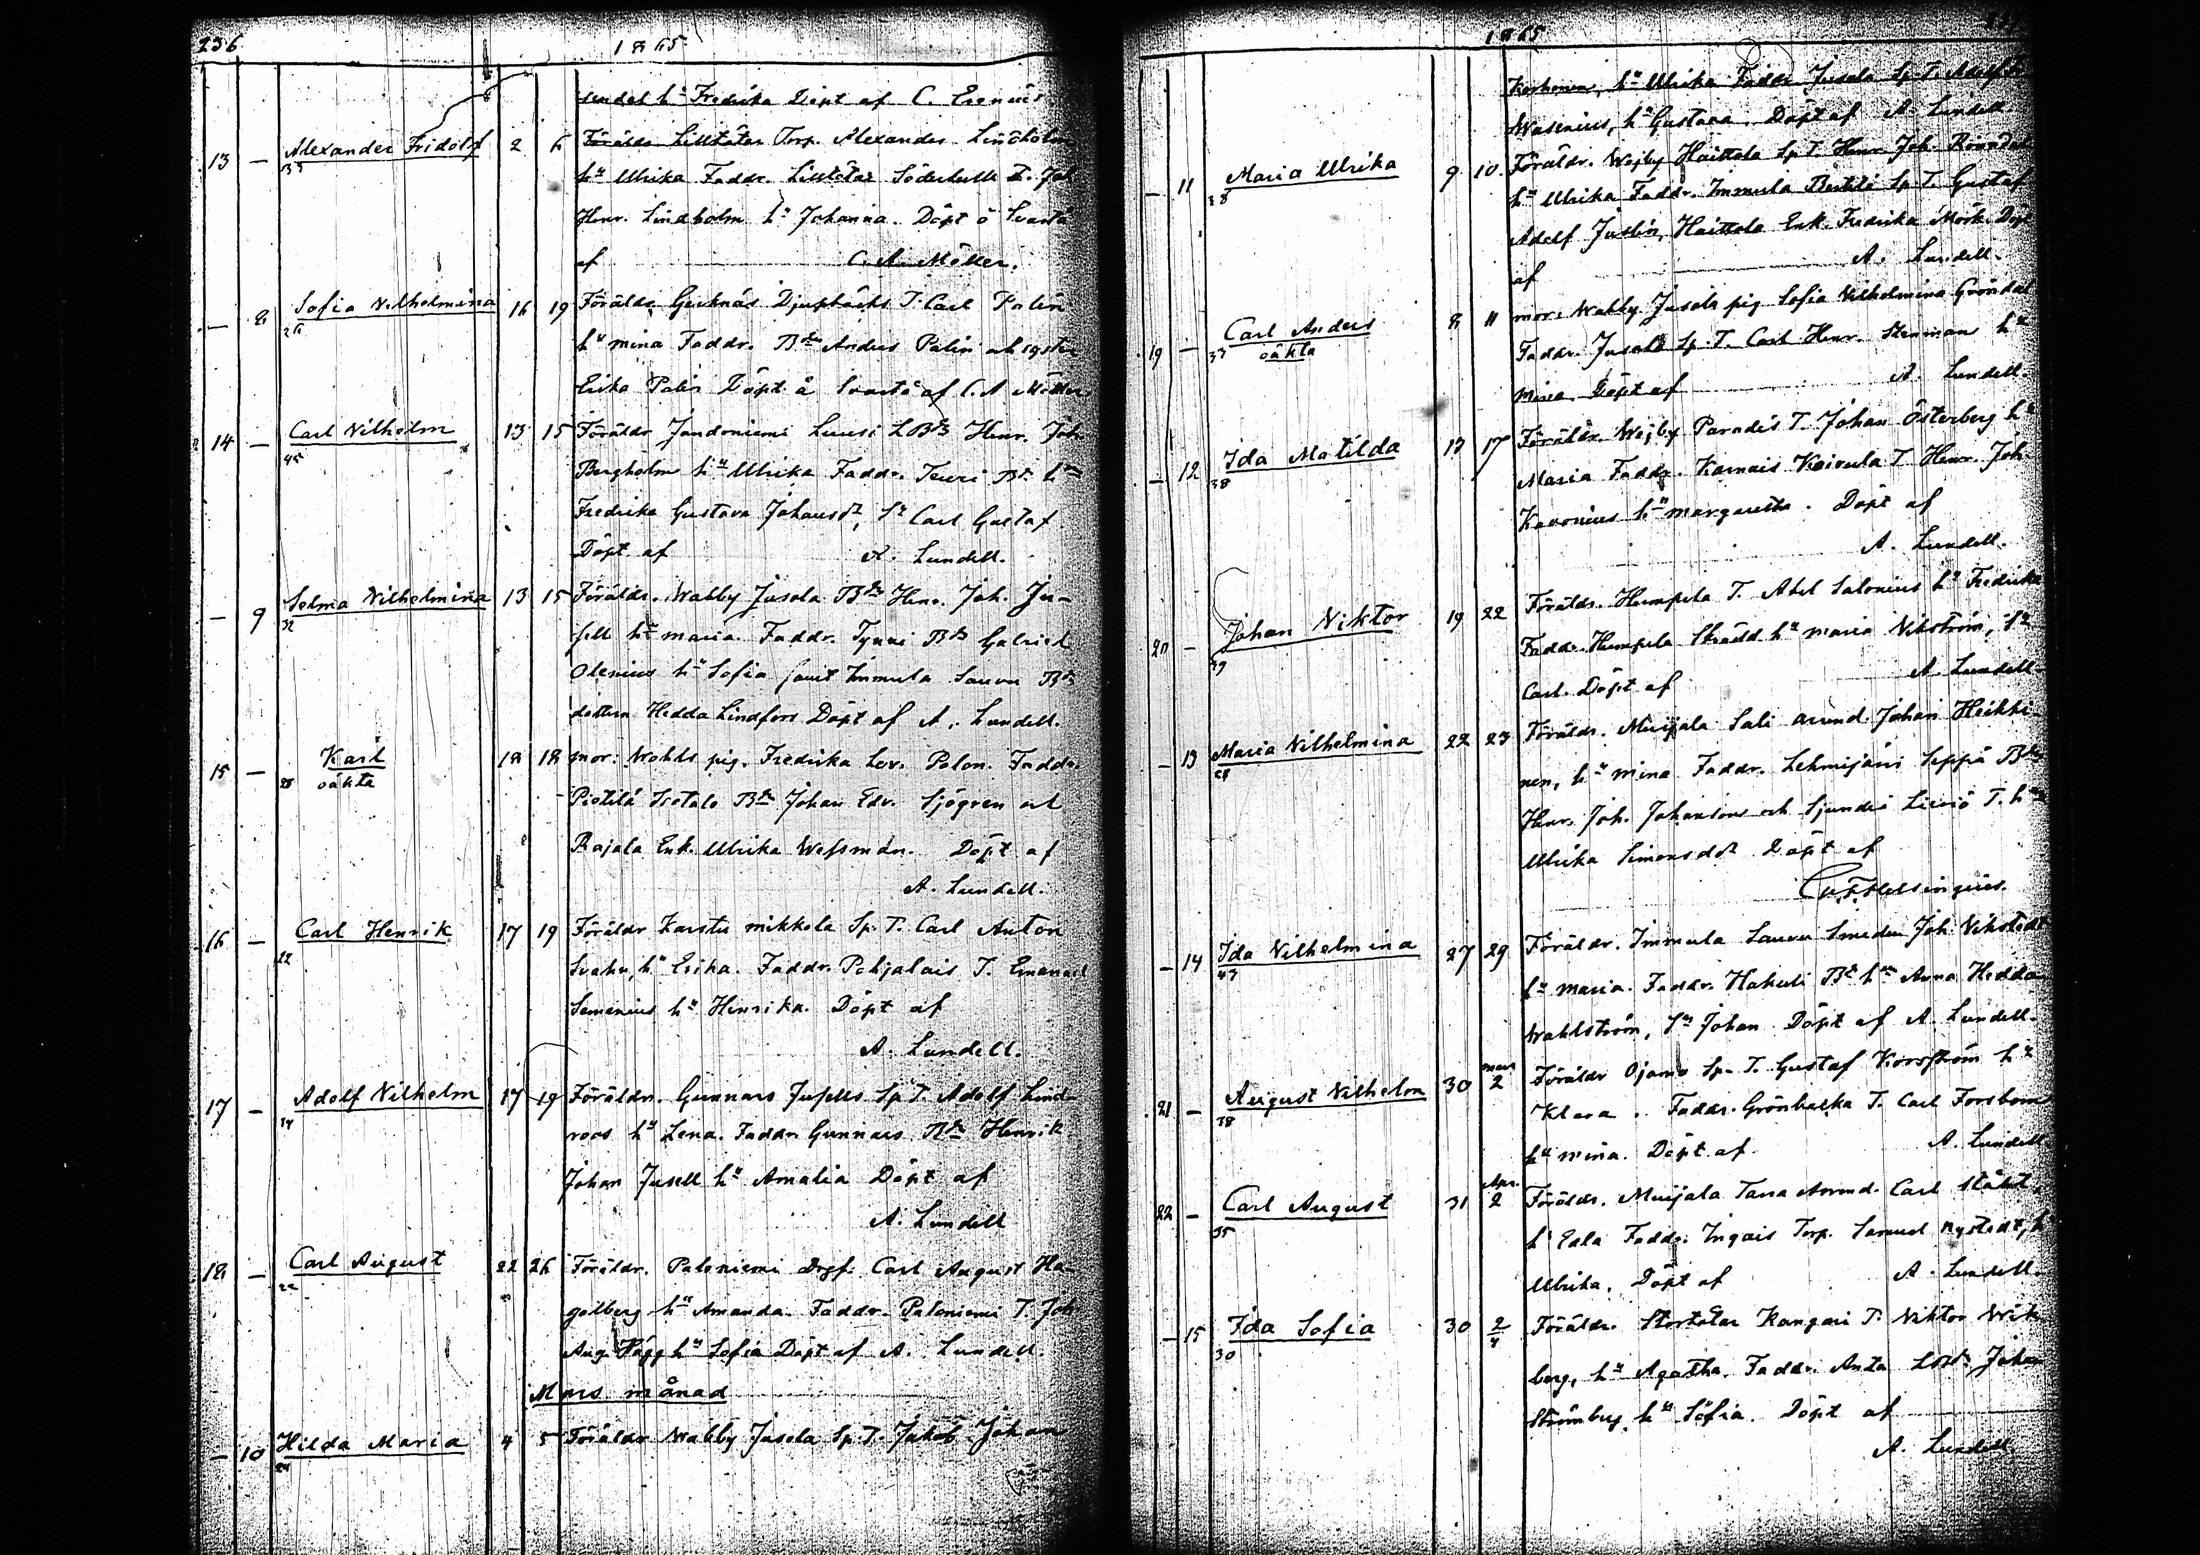 236
1865
sendal hu Fredrika Döpt af C. Erenius.
13 — Alexander Fridolf 2 6 Föräldr. Lilltötar Torp. Alexander Lindholm
33 hu Ulrika Faddr. Lilltötar Söderkulla T. Joh
Henr. Lindholm hu Johanna. Döpt å Svartå
af C. A. Möller.
— 8 Sofia Vilhelmina 16 19 Föräldr. Gerknäs Djupbäcks T. Carl Palin
26 hu mina Faddr. Bdn Anders Palin ok syster
Erika Palin Döpt å Svartå af C. A Möller
14 — Carl Vilhelm 13 15 Föräldr Jondoniemi Luusi LBds Henr. Joh
45 Bergholm hu Ulrika Faddr. Teuri Bd hu
Fredrika Gustava Johansdr, Sn Carl Gustaf.
Döpt af A. Lundell.
— 9 Selma Vilhelmina 13 15 Föräldr. Wabby Jusola Bdn Henr. Joh. Ju-
32 sell hu maria. Faddr. Tynni Bds Gabriel
Olenius hu Sofia samt Immula Sauvu Bds
dottern Hedda Lindfors Döpt af A. Lundell.
15 — Karl 18 18 mor: Wohls pig. Fredrika Lov. Polon. Faddr.
28 oäkta Pietilä Isotalo Bdn Johan Edv. Sjögren och
Rajala Enk. Ulrika Wessman. Döpt af
A. Lundell.
16 — Carl Henrik 17 19 Föräldr Karstu mikkola Sp. T. Carl Anton
22 Svahn, hu Erika. Faddr. Pohjalais T. Emanuel
Semenius hu Henrika. Döpt af
A. Lundell.
17 — Adolf Vilhelm 17 19 Föräldr. Gunnars Jusells Sp T. Adolf Lind-
34 roos hu Lena. Faddr Gunnars Bdn Henrik
Johan Jusell hu Amalia Döpt af
A. Lundell
18 — Carl August 22 26 Föräldr. Paloniemi drgf. Carl August Ha-
22 gelberg hu Amanda. Faddr. Paloniemi T. Joh
Aug. Hägg hu Sofia Döpt af A. Lundell.
Mars månad
— 10 Hilda Maria 4 5 Föräldr Wabby Jusola Sp. T. Jakob Johan
24
1865
Korhonen, hu Ulrika Faddr Jusola Sp. T. Adolf
Wasenius, hu Gustava. Döpt af A. Lundell
— 11 Maria Ulrika 9 10 Föräldr. Wejby Haittola Sp T. Henr Joh. Röindal
28 hu Ulrika Faddr. Immula Bertili Sp T. Gustaf
Adolf Juslin, Haittola Enk. Fredrika Mörk. Döpt
af A. Lundell.
19 — Carl Anders 8 11 mor: Wabby Jusola pig Sofia Vilhelmina Gröndal
37 oäkta Faddr. Jusola Sp. T. Carl Henr. Stenman hu
mina. Döpt af A. Lundell.
— 12 Ida Matilda 13 17 Föräldr. Wejby Paradis T. Johan Österberg hu
38 Maria Faddr. Karnais Koivula T. Henr. Joh.
Kavonius hu margaretha. Döpt af
A. Lundell.
20 — Johan Viktor 19 22 Föräldr. Humpila T. Abel Salonius hu Fredrika
29 Faddr. Humpila Skrädd. hu maria Vikström, Sn
Carl. Döpt af A. Lundell
— 13 Maria Vilhelmina 22 23 Föräldr. Muijala Sali arrend. Johan Heikki-
28 nen, hu mina Faddr. Lehmijärvi Seppä Bds
Henr. Joh. Johansson och Sjundeå Lieviö T. hu
Ulrika Simonsddr Döpt af
C. F. Helsingius.
— 14 Ida Vilhelmina 27 29 Föräldr. Immula Sauvu Smeden Joh Vikstedt
43 hu maria. Faddr. Hakuli Bd hu Anna Hedda
Wahlström, Sn Johan Döpt af A. Lundell.
21 — August Vilhelm 30 mars 2 Föräldr Ojamo Sp. T. Gustaf Korsström hu
38 Klara. Faddr. Grönbacka T. Carl Forsbom
hu mina. Döpt af A. Lundell
22 — Carl August 31 Apr. 2 Föräldr. Muijala Tana Arrend. Carl Ståhl,
35 hu Edla Faddr. Ingais Torp. Samuel Nystedt, hu
Ulrika. Döpt af A. Lundell.
— 15 Ida Sofia 30 2/4 Föräldr. Stortötar Kangari T. Viktor Wik
30 berg, hu Agatha. Faddr. Anta LBds Johan
Strömberg hu Sofia. Döpt af
A. Lundell